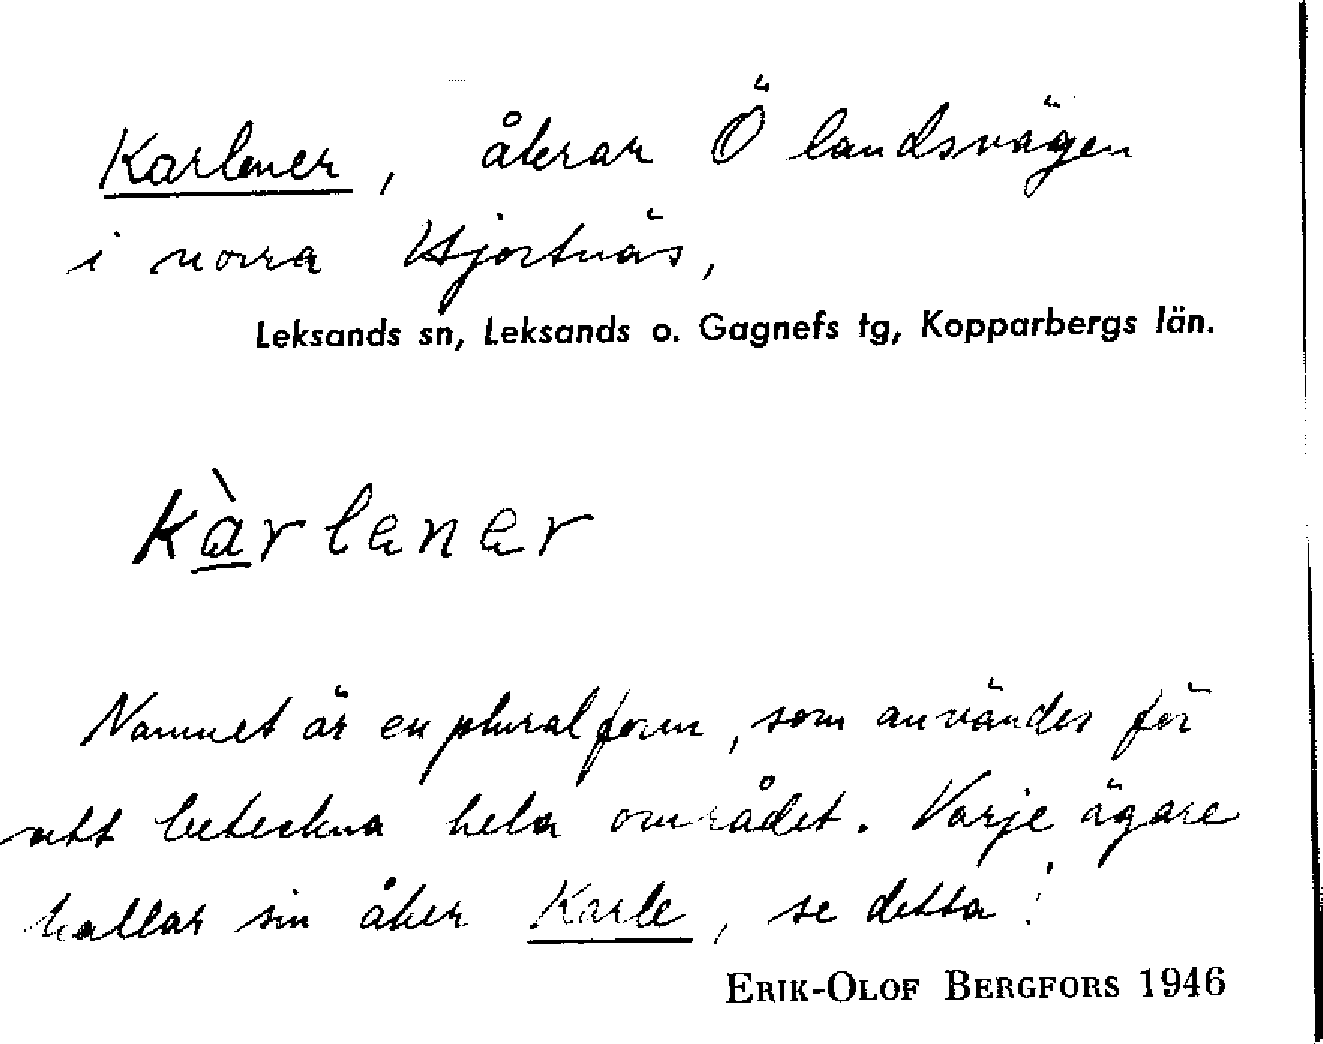 Karlener, åkrar Ö landsvägen
i norra Hjortnäs,
Leksands sn, Leksands o. Gagnefs tg, Kopparbergs län.
kàrlener
Namnet är en pluralform, som användes för
att beteckna hela området. Varje ägare
kallar sin åker Karle, se detta!
ERIK-OLOF BERGFORS 1946